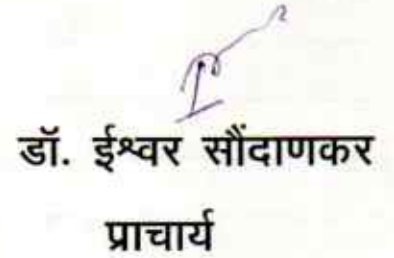 डॉ. ईश्वर सौंदाणकर
प्राचार्य